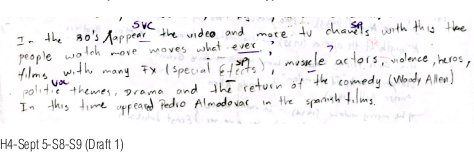 SVC SP
In the 80's appear the video and more tv chanels with this the
people watch more moves what ever ?
SP
films with many FX (special efects), muskle actors, violence, heros,
VOC
politic themes, Drama and the return of the comedy (Woody Allen)
In this time appeard Pedro Almodovar in the spanish films.
H4-Sept 5-S8-S9 (Draft 1)